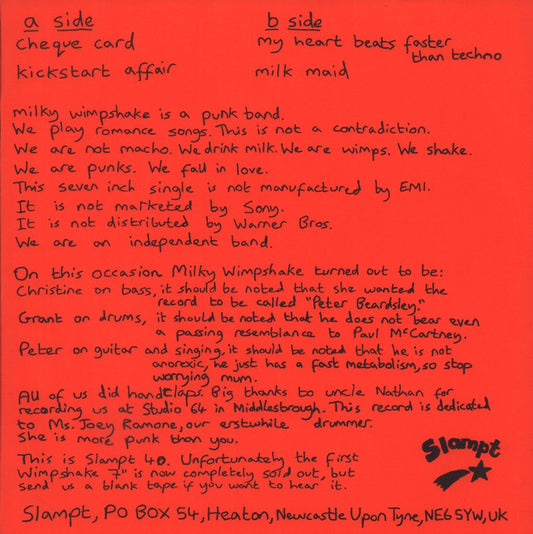 a side
cheque card
kickstart affair
b side
my heart beats faster
than techno
milk maid
milky wimpshake is a punk band.
We play romance songs. This is not a contradiction.
We are not macho. We drink milk. We are wimps. We shake.
We are punks. We fall in love.
This seven inch single is not manufactured by EMI.
It is not marketed by Sony.
It is not distributed by Warner Bros.
We are an independent band.
On this occasion Milky Wimpshake turned out to be:
Christine on bass, it should be noted that she wanted the
record to be called "Peter Beardsley."
Grant on drums, it should be noted that he does not bear even
a passing resemblance to Paul McCartney.
Peter on guitar and singing, it should be noted that he is not
anorexic, he just has a fast metabolism, so stop
worrying mum.
All of us did handclaps. Big thanks to uncle Nathan for
recording us at Studio 64 in Middlesbrough. This record is dedicated
to Ms. Joey Ramone, our erstwhile drummer.
She is more punk than you.
This is Slampt 40. Unfortunately the first
Wimpshake 7" is now completely sold out, but
send us a blank tape if you want to hear it.
Slampt
Slampt, PO BOX 54, Heaton, Newcastle Upon Tyne, NE6 5YW, UK